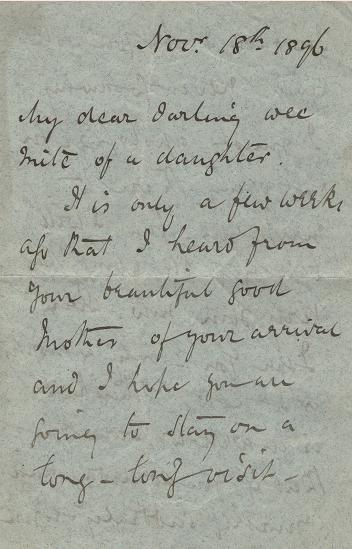 Novr 18th 1896
My dear Darling wee
mite of a daughter.
It is only a few weeks
ago that I heard from
your beautiful good
Mother of your arrival
and I hope you are
going to stay on a
long - long visit -